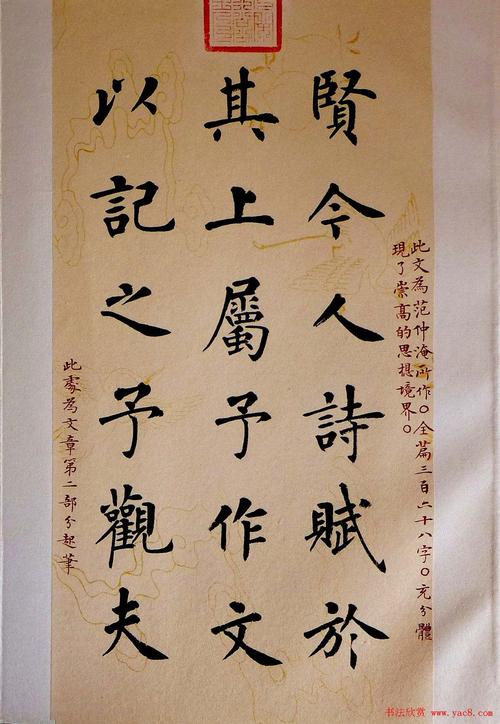 賢今人詩賦於
其上屬予作文
以記之予觀夫
此文為范仲淹所作。全篇三百六十八字。充分體
現了崇高的思想境界。
此處為文章第二部分起筆
书法欣赏 www.yac8.com